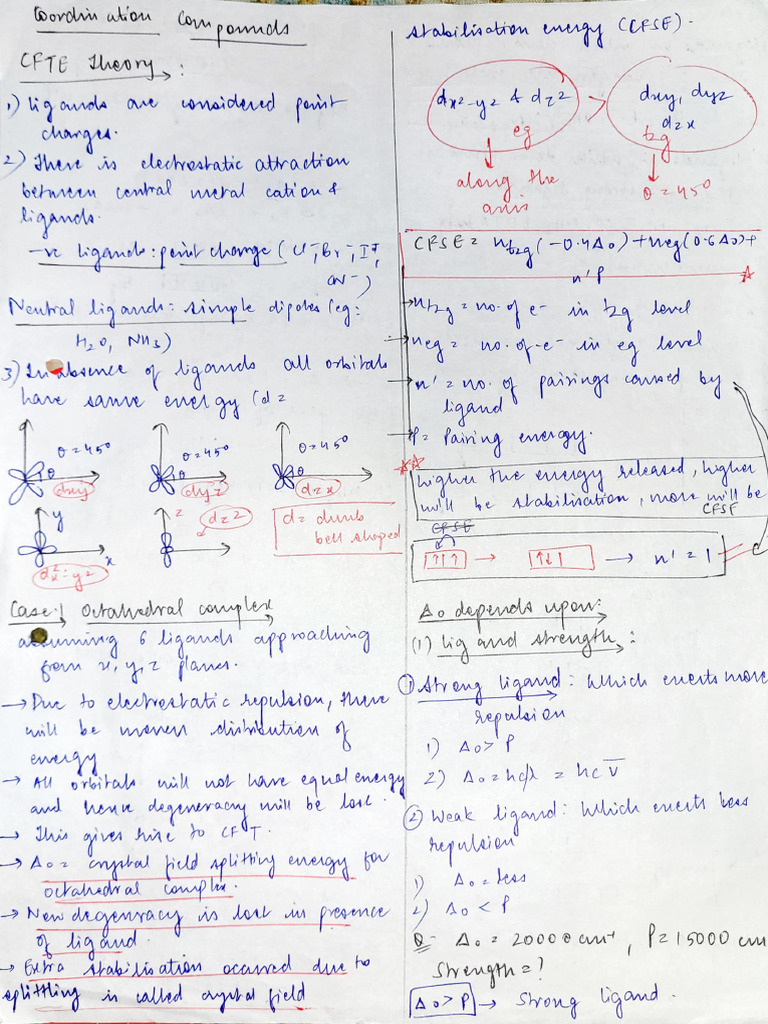 Coordination Compounds
CFTE Theory:
1) ligands are considered point
charges.
2) There is electrostatic attraction
between central metal cation &
ligands.
-ve ligands: point charge (Cl⁻, Br⁻, I⁻,
CN⁻)
Neutral ligands: simple dipoles (eg:
H₂O, NH₃)
3) In absence of ligands all orbitals
have same energy (d=
θ=45°
θ
dxy
θ=45°
θ
dyz
θ=45°
θ
dzx
y
x
dx²-y²
z
dz²
d= dumb
bell shaped
Case:1 Octahedral complex
assuming 6 ligands approaching
from x, y, z planes.
→ Due to electrostatic repulsion, there
will be uneven distribution of
energy
→ All orbitals will not have equal energy
and hence degeneracy will be lost.
→ This gives rise to CFT.
→ Δo = crystal field splitting energy for
octahedral complex.
→ New degenracy is lost in presence
of ligand.
→ Extra stabilisation ocurred due to
splitting is called crystal field
stabilisation energy (CFSE).
dx²-y² & dz²
eg
>
dxy, dyz
dzx
t2g
along the
axis
θ=45°
CFSE = nt2g(-0.4Δo) + neg(0.6Δo)+
n'P
→ nt2g = no. of e⁻ in t2g level
→ neg = no. of e⁻ in eg level
→ n' = no. of pairings caused by
ligand
→ P = Pairing energy.
Higher the energy released, higher
will be stabilisation, more will be
CFSE
CFSE
↑↓ ↑ ↑ → ↑↓ ↑ → n' = 1
Δo depends upon:
(1) ligand strength:
① Strong ligand: Which exerts more
repulsion
1) Δo > P
2) Δo = hc/λ = hc v̅
② Weak ligand: Which exerts less
repulsion
1) Δo = less
2) Δo < P
Q- Δo = 20000 cm⁻¹, P = 15000 cm
Strength = ?
Δo > P → Strong ligand.